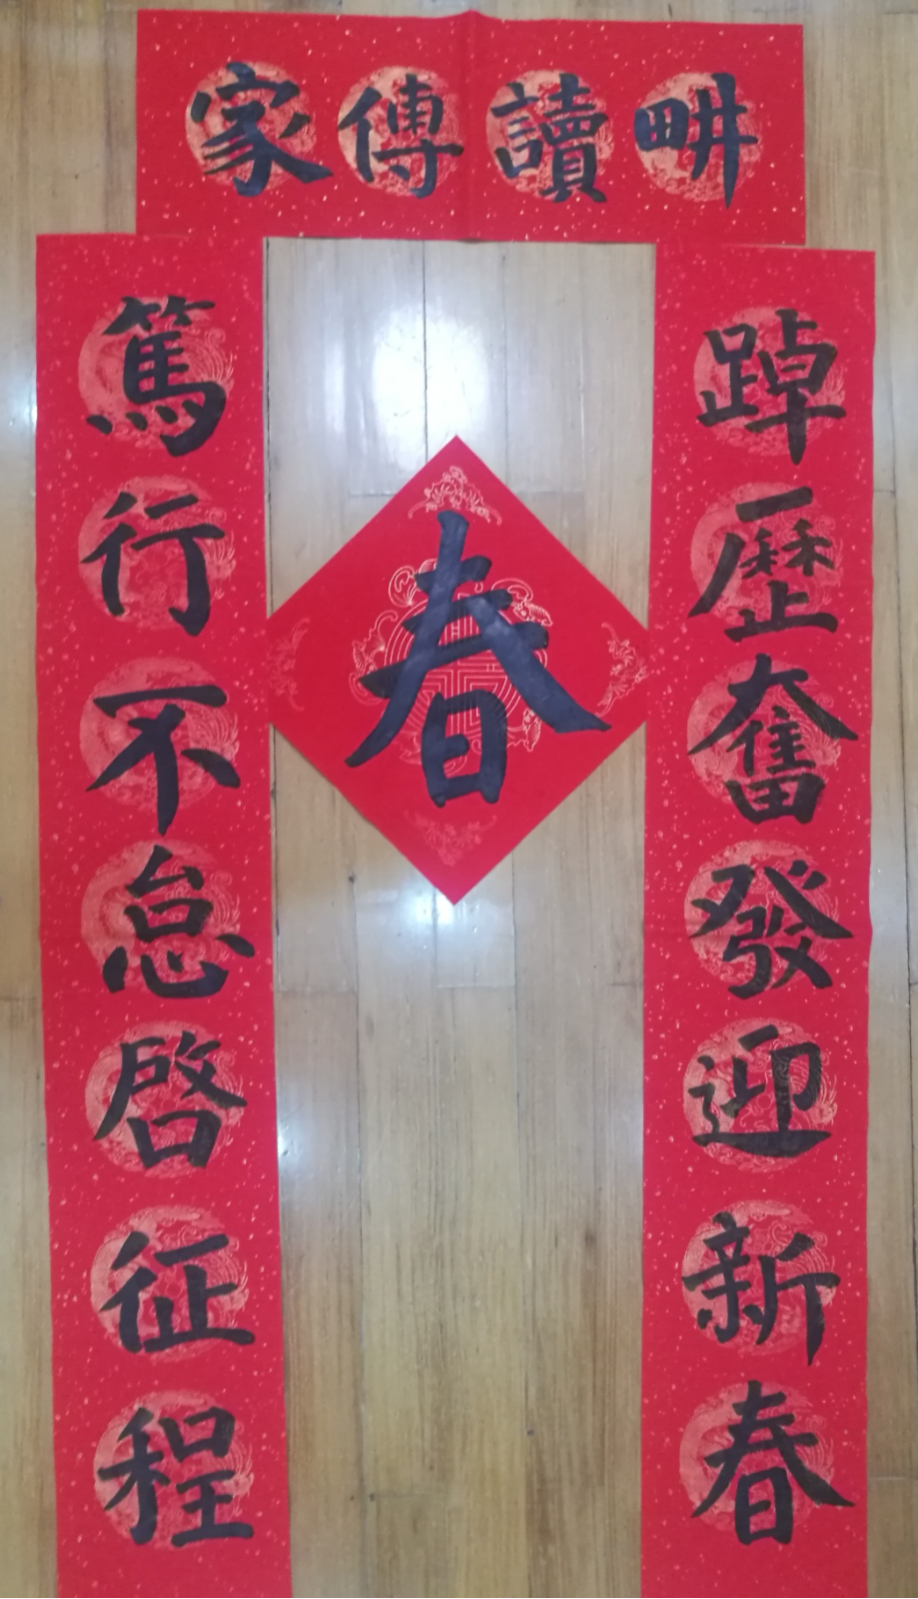 畊讀傳家
踔歷奮發迎新春
篤行不怠啓征程
春